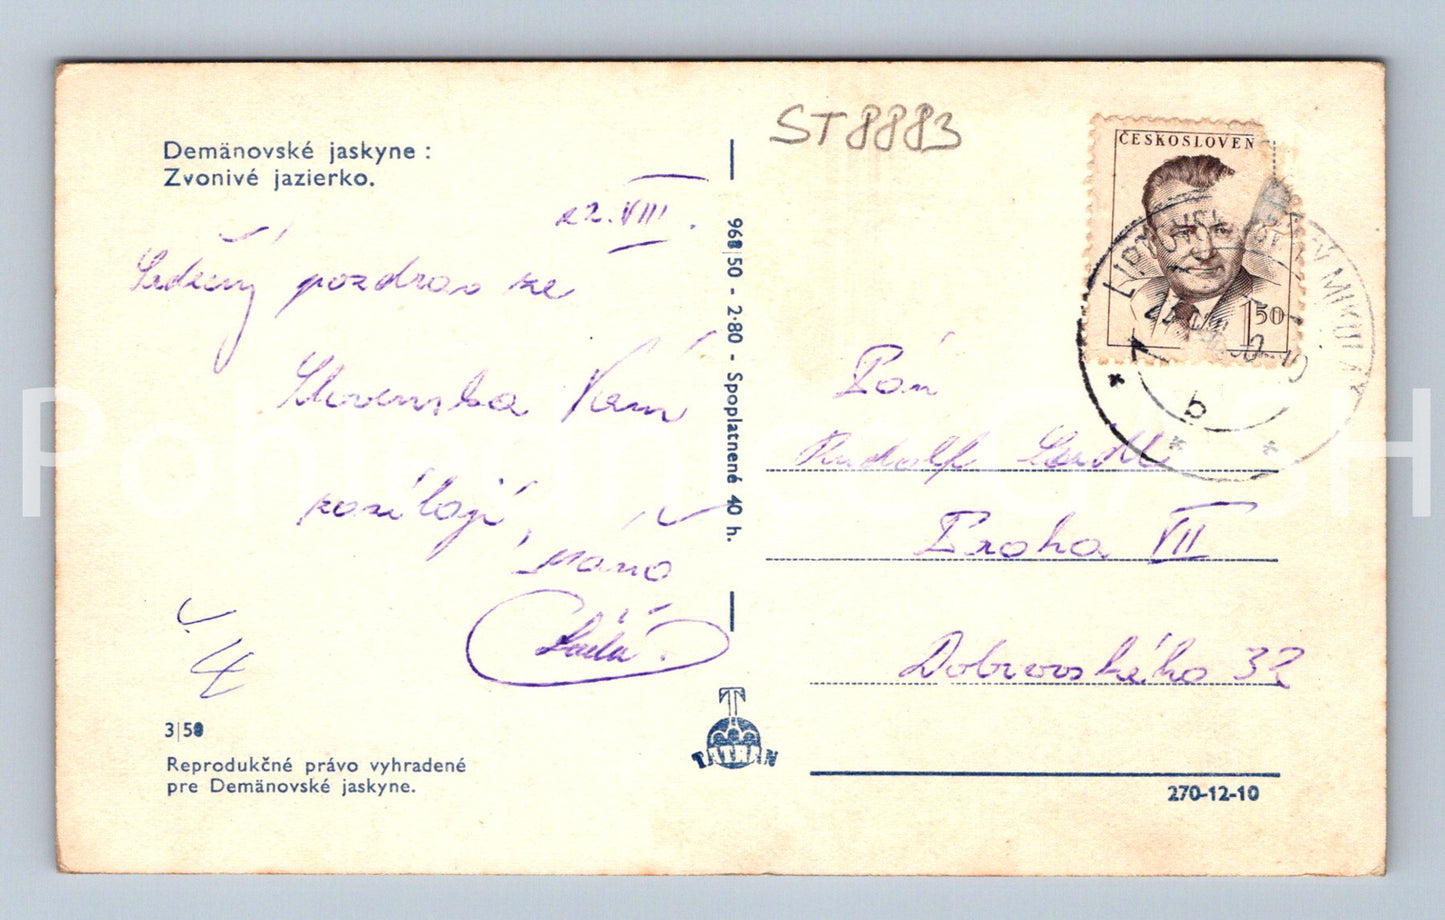 Demänovské jaskyne :
Zvonivé jazierko.
22. VIII.
Srdečný pozdrav ze
Slovenska Vám
zasílají,
3|50
Reprodukčné právo vyhradené
pre Demänovské jaskyne.
968|50 - 2·80 - Spoplatnené 40 h.
TATRAN
ST8883
ČESKOSLOVEN
1 50
b
Pán
Rudolf
Praha VII
Dobrovského 32
270-12-10